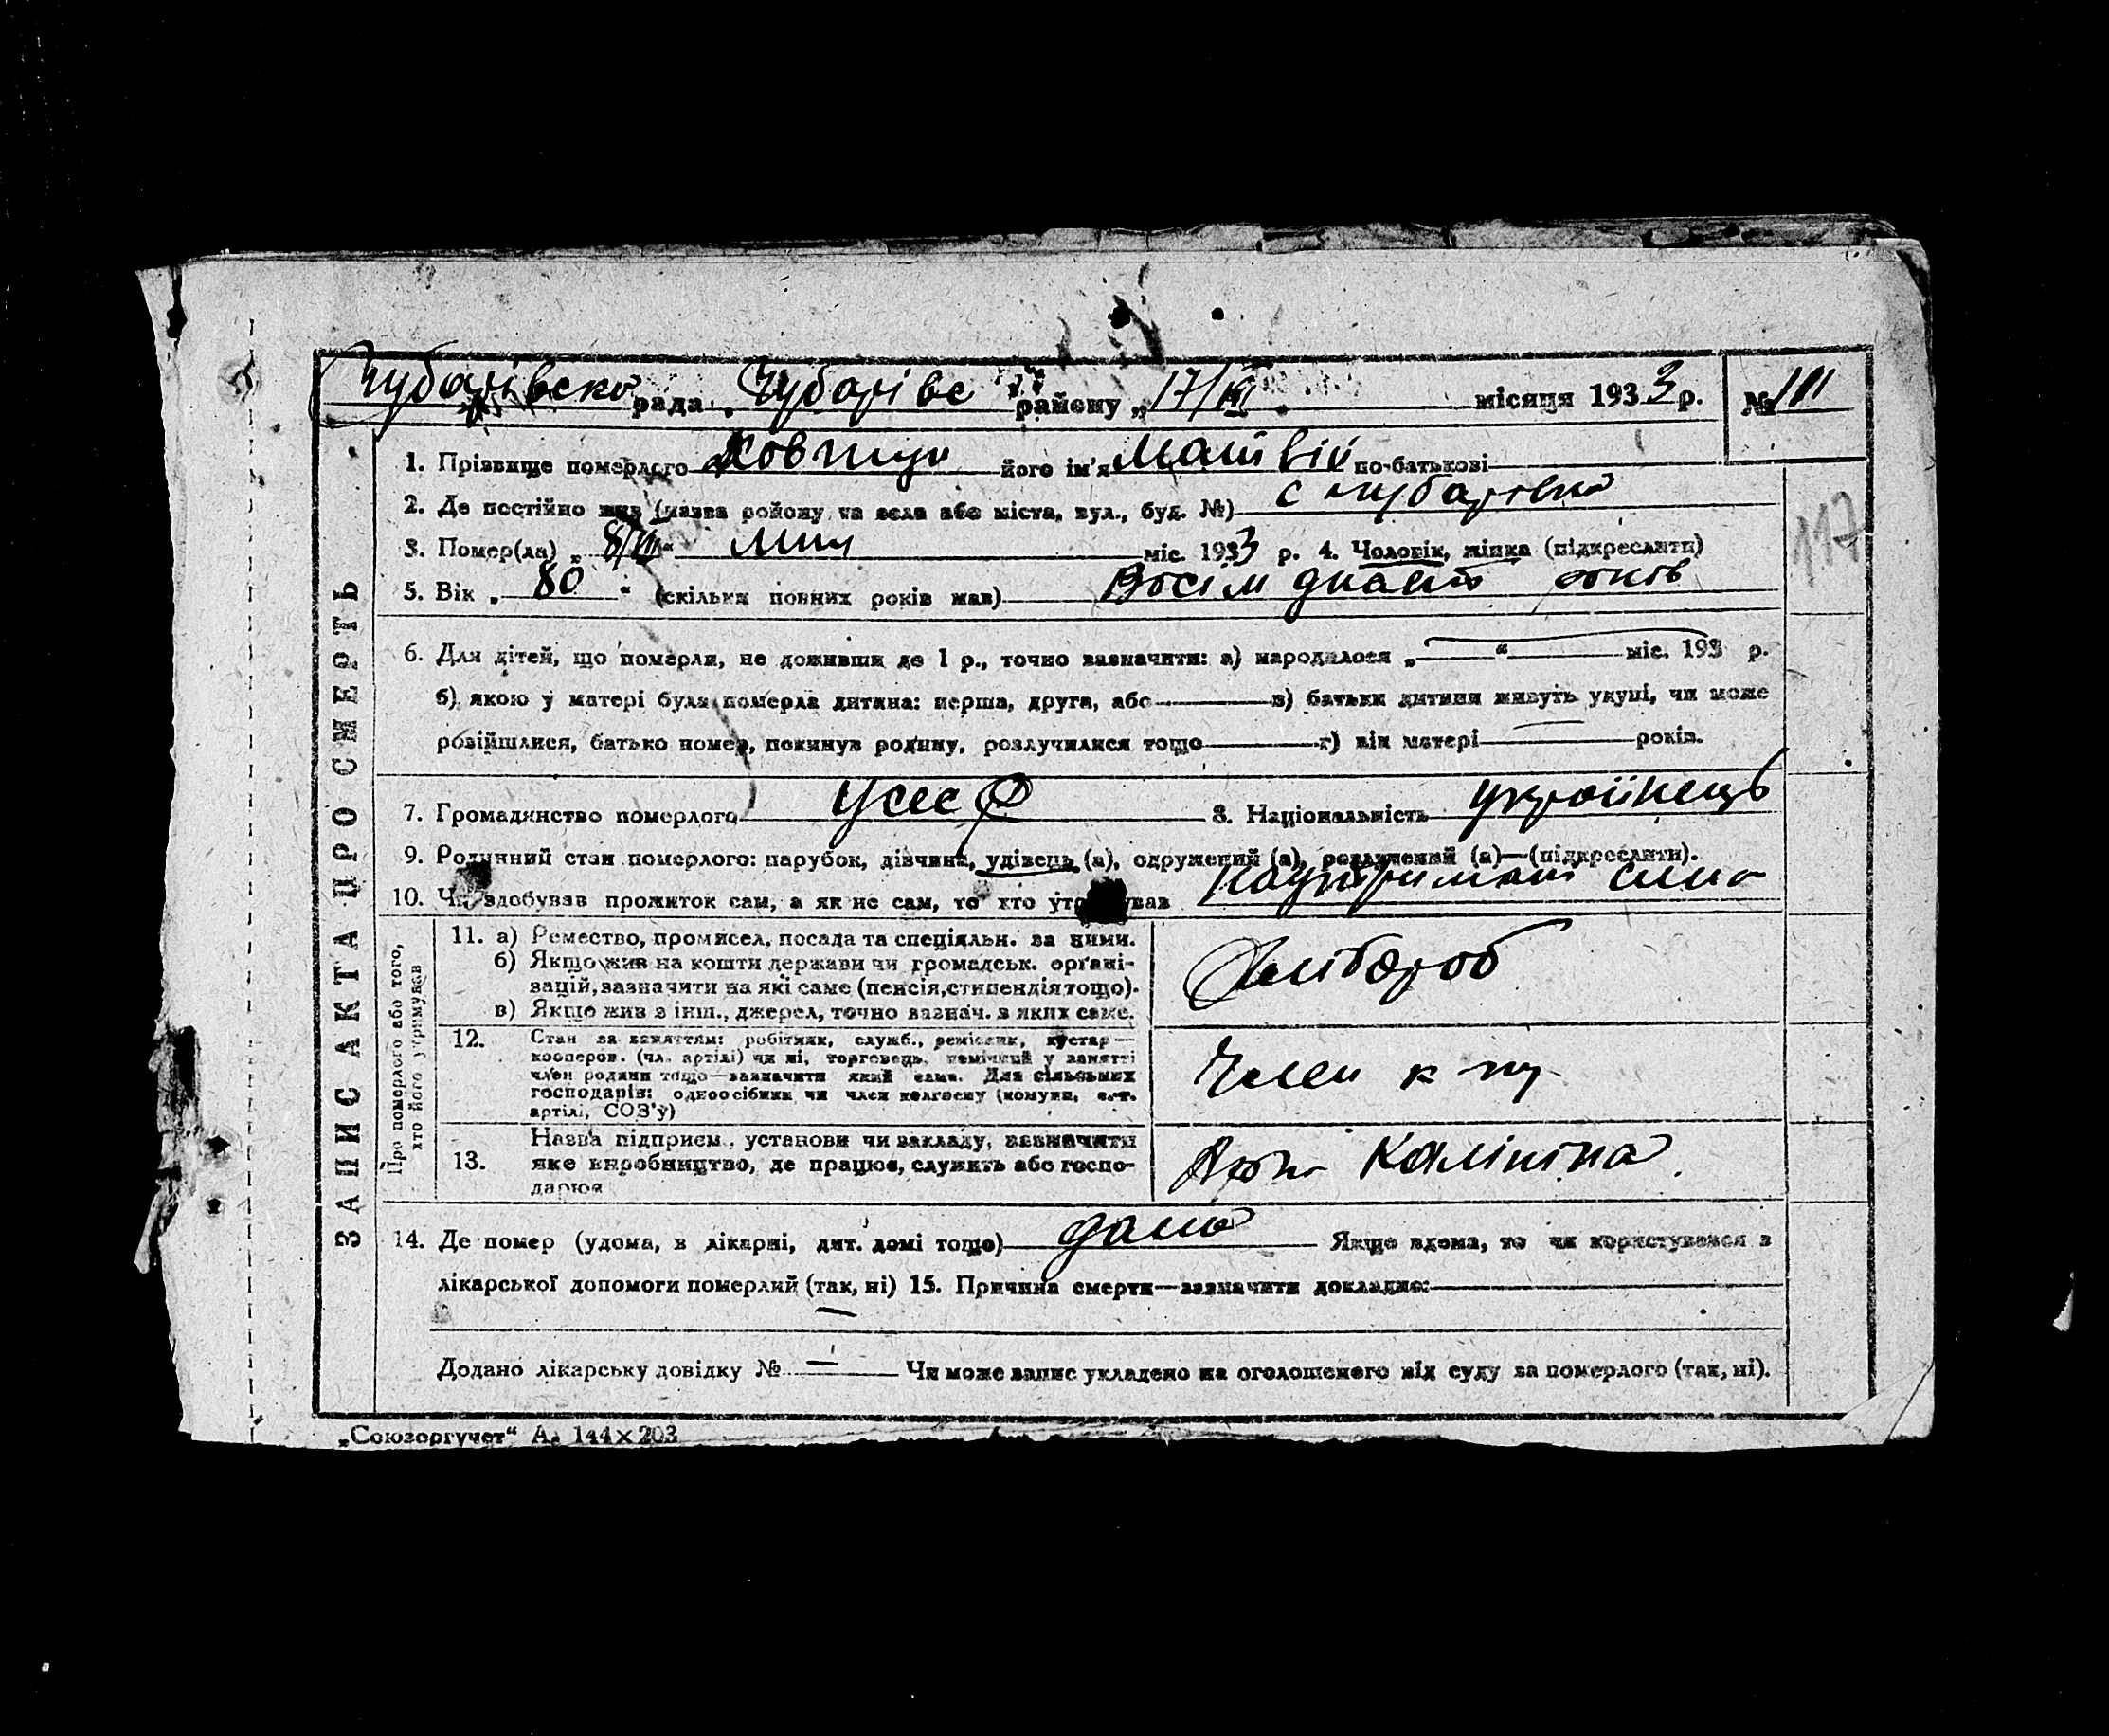 Чубарівска рада Чубарівс району „17/VII“ місяця 1933 р. № 111
1. Прізвище померлого Ковтун його ім'я Матвій по-батькові
2. Де постійно жив (назва району та села або міста, вул., буд. №) с Чубарівка
3. Помер(ла) „8/VII“ міс. 1933 р. 4. Чоловік, жінка (підкреслити)
5. Вік „80“ (скільки повних років мав) Восімднаят років
117
6. Для дітей, що померли, не доживши до 1 р., точно зазначити: а) народилося „ “ міс. 193 р.
б) якою у матері була померла дитина: перша, друга, або в) батьки дитини живуть укупі, чи може
розійшлися, батько помер, покинув родину, розлучилися тощо г) вік матері років.
7. Громадянство померлого УССР 8. Національність українець
9. Родинний стан померлого: парубок, дівчина, удівець (а), одружений (а), розлучений (а)—(підкреслити).
10. Чи здобував прожиток сам, а як не сам, то хто утримував на утриманні сина
ЗАПИС АКТА ПРО СМЕРТЬ
Про померлого або того,
хто його утримував
11. а) Ремество, промисел, посада та спеціяльн. за ними.
б) Якщо жив на кошти держави чи громадськ. орґані-
зацій, зазначити на які саме (пенсія, стипендія тощо).
в) Якщо жив з інш., джерел, точно зазнач. з яких саме.
Хлібороб
12. Стан за заняттям: робітник, служб., ремісник, кустар—
кооперов. (чл. артілі) чи ні, торговець, помічний у занятті
член родини тощо—зазначити який саме. Для сільських
господарів: одноосібник чи член колгоспу (комуни, с.-г.
артілі, СОЗ'у)
Член к
13. Назва підприєм., установи чи закладу, зазначити
яке виробництво, де працює, служить або госпо-
дарює
Арт Калініна
14. Де помер (удома, в лікарні, дит. домі тощо) дома Якщо вдома, то чи користувався з
лікарської допомоги померлий (так, ні) 15. Причина смерти—зазначити докладно:
Додано лікарську довідку № — Чи може запис укладено на оголошеного від суду за померлого (так, ні).
„Союзоргучет“ А. 144×203